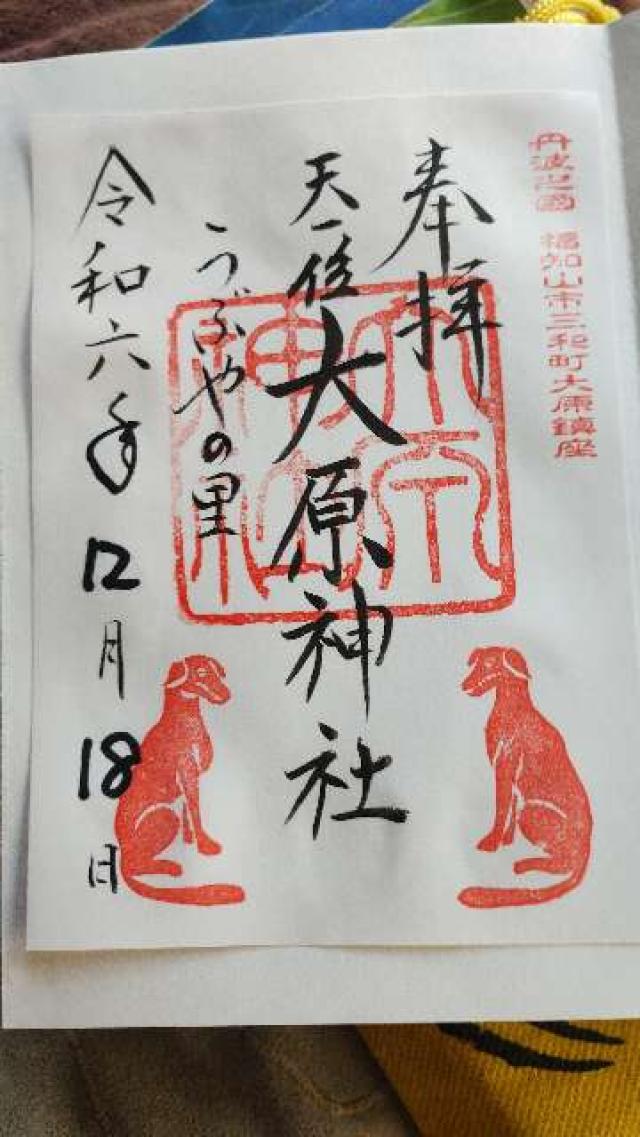 丹波之國 福知山市三和町大原鎮座
奉拝
天一位 大原神社
うぶやの里
令和六年12月18日